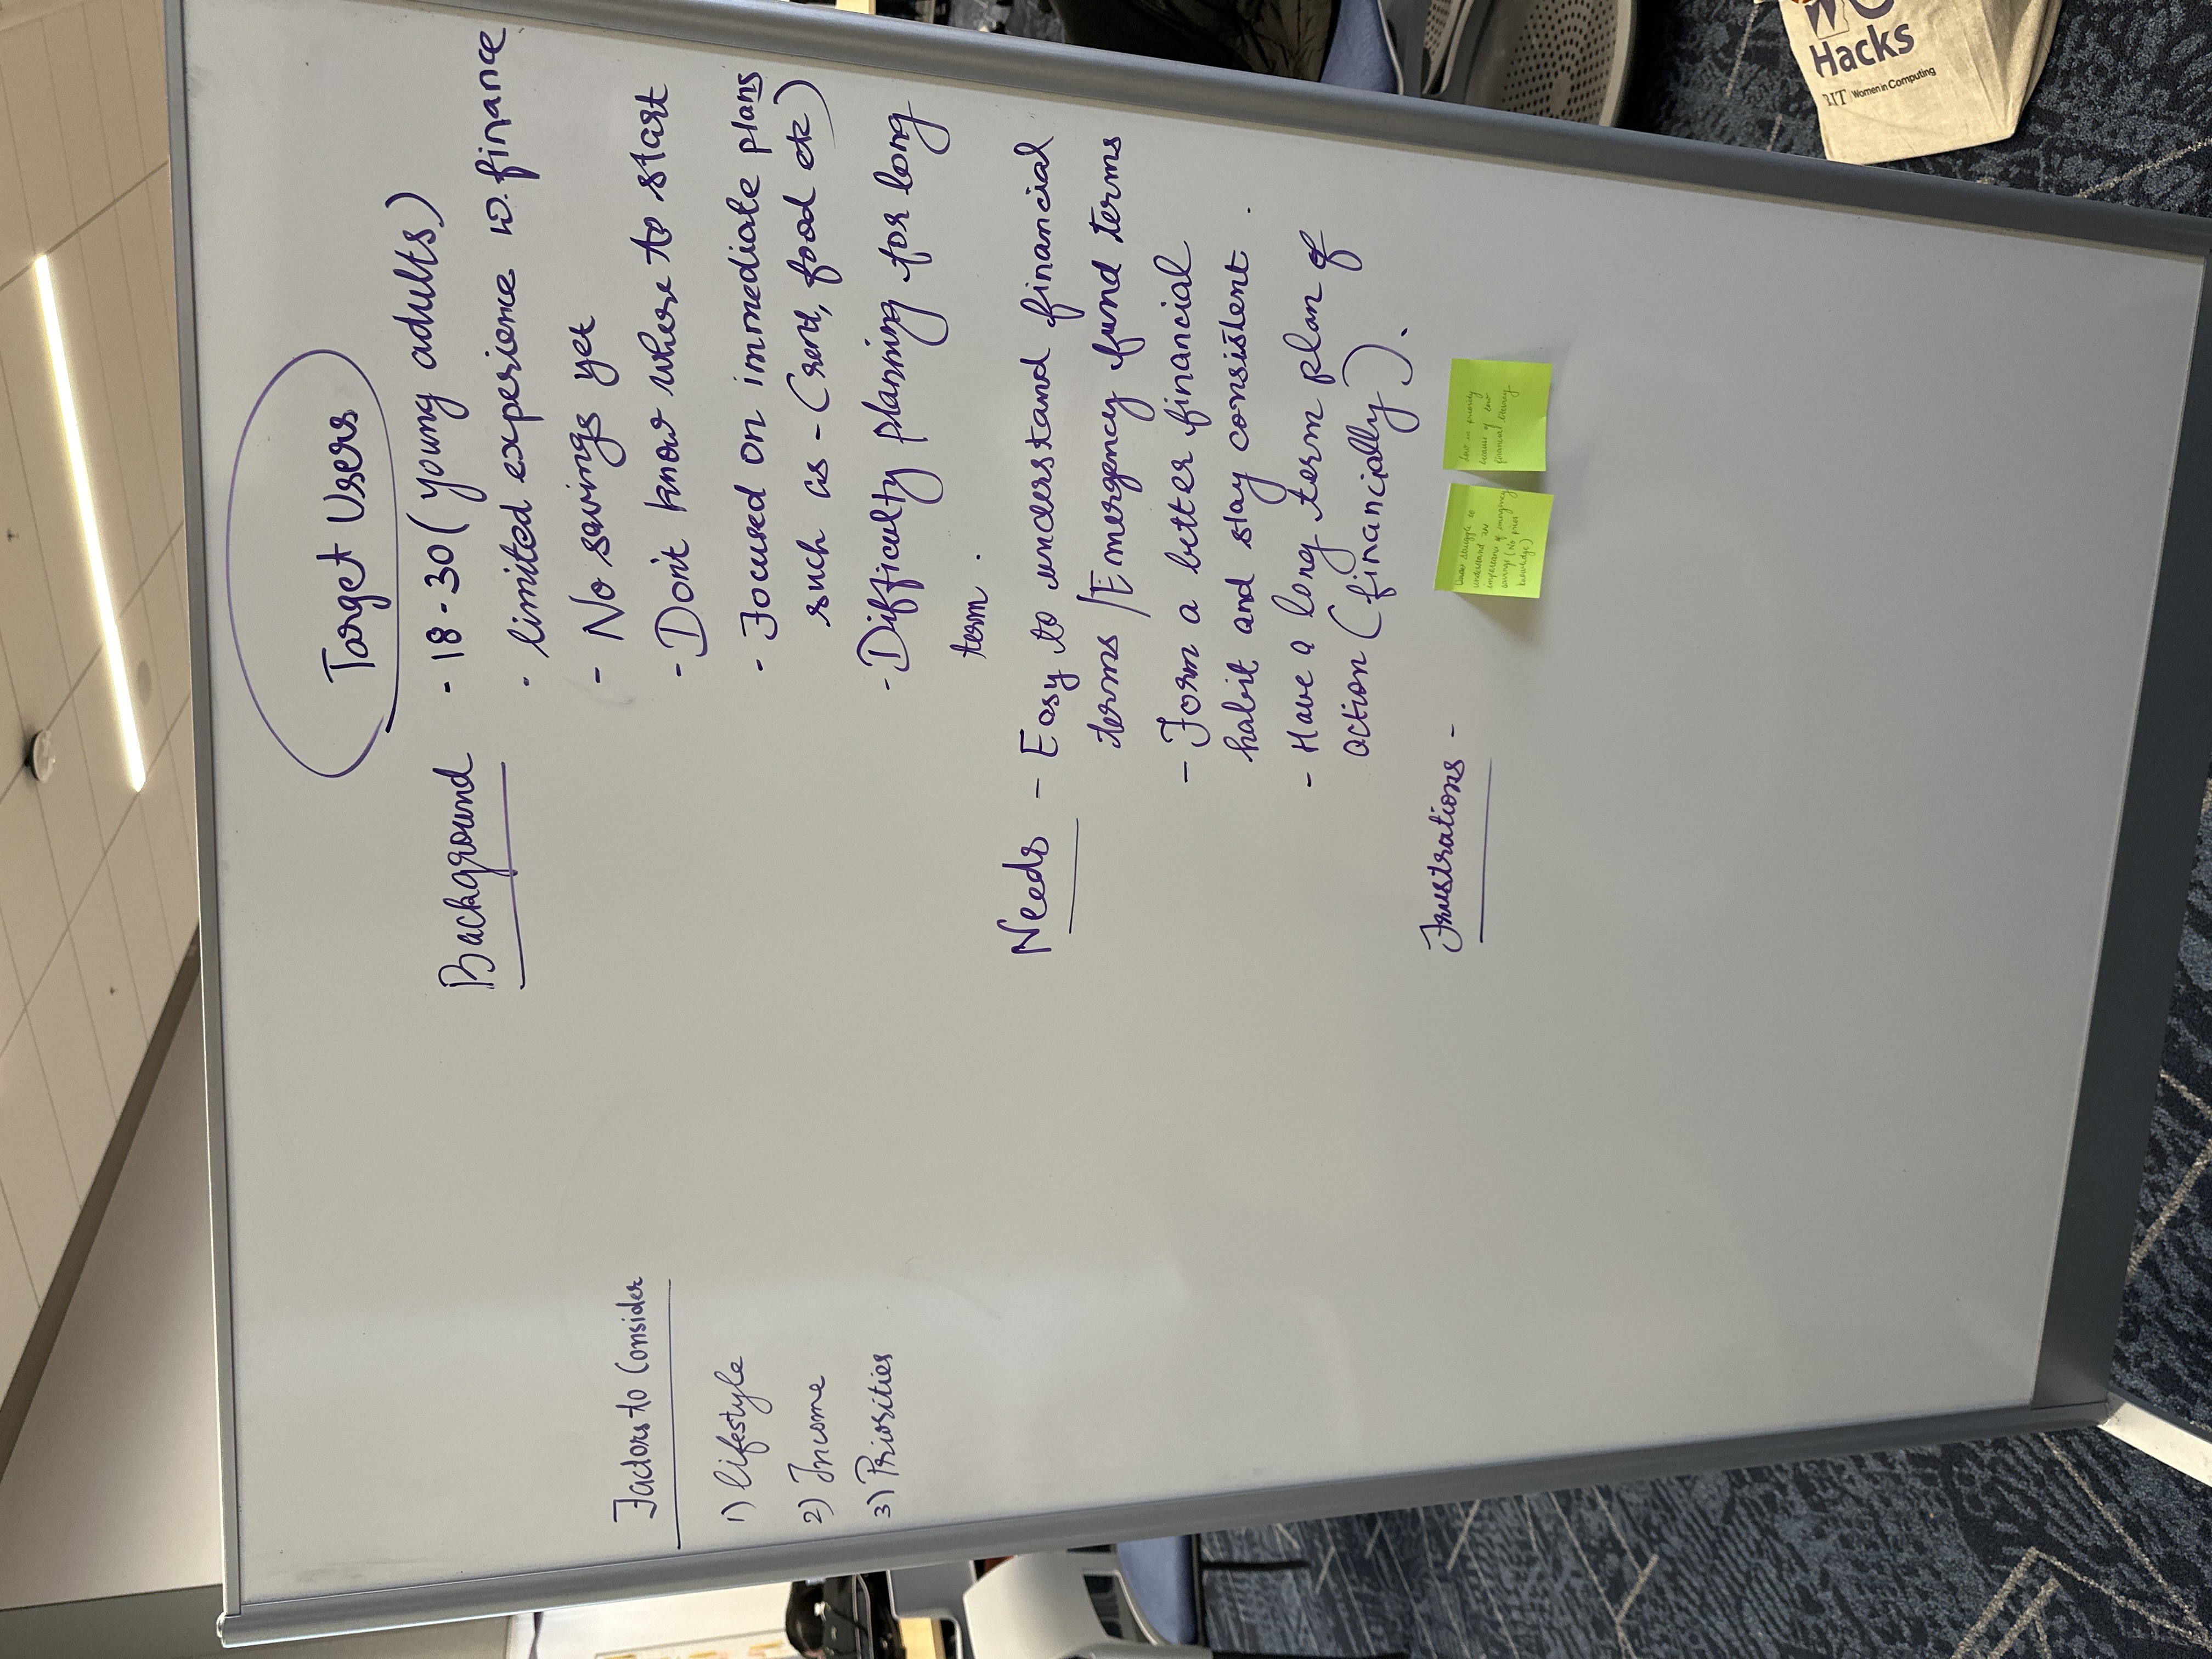 Target Users
Background
- 18-30 (young adults)
- limited experience w. finance
- No savings yet
- Don't know where to start
- Focused on immediate plans
such as - (rent, food etc)
- Difficulty planning for long
term.
Needs
- Easy to understand financial
terms / Emergency fund terms
- Form a better financial
habit and stay consistent.
- Have a long term plan of
action (financially).
Frustrations -
Users struggle to
understand
importance of emergency
savings (No prior
knowledge)
low in priority
because of
financial literacy
Factors to Consider
1) Lifestyle
2) Income
3) Priorities
Hacks
RIT Women in Computing